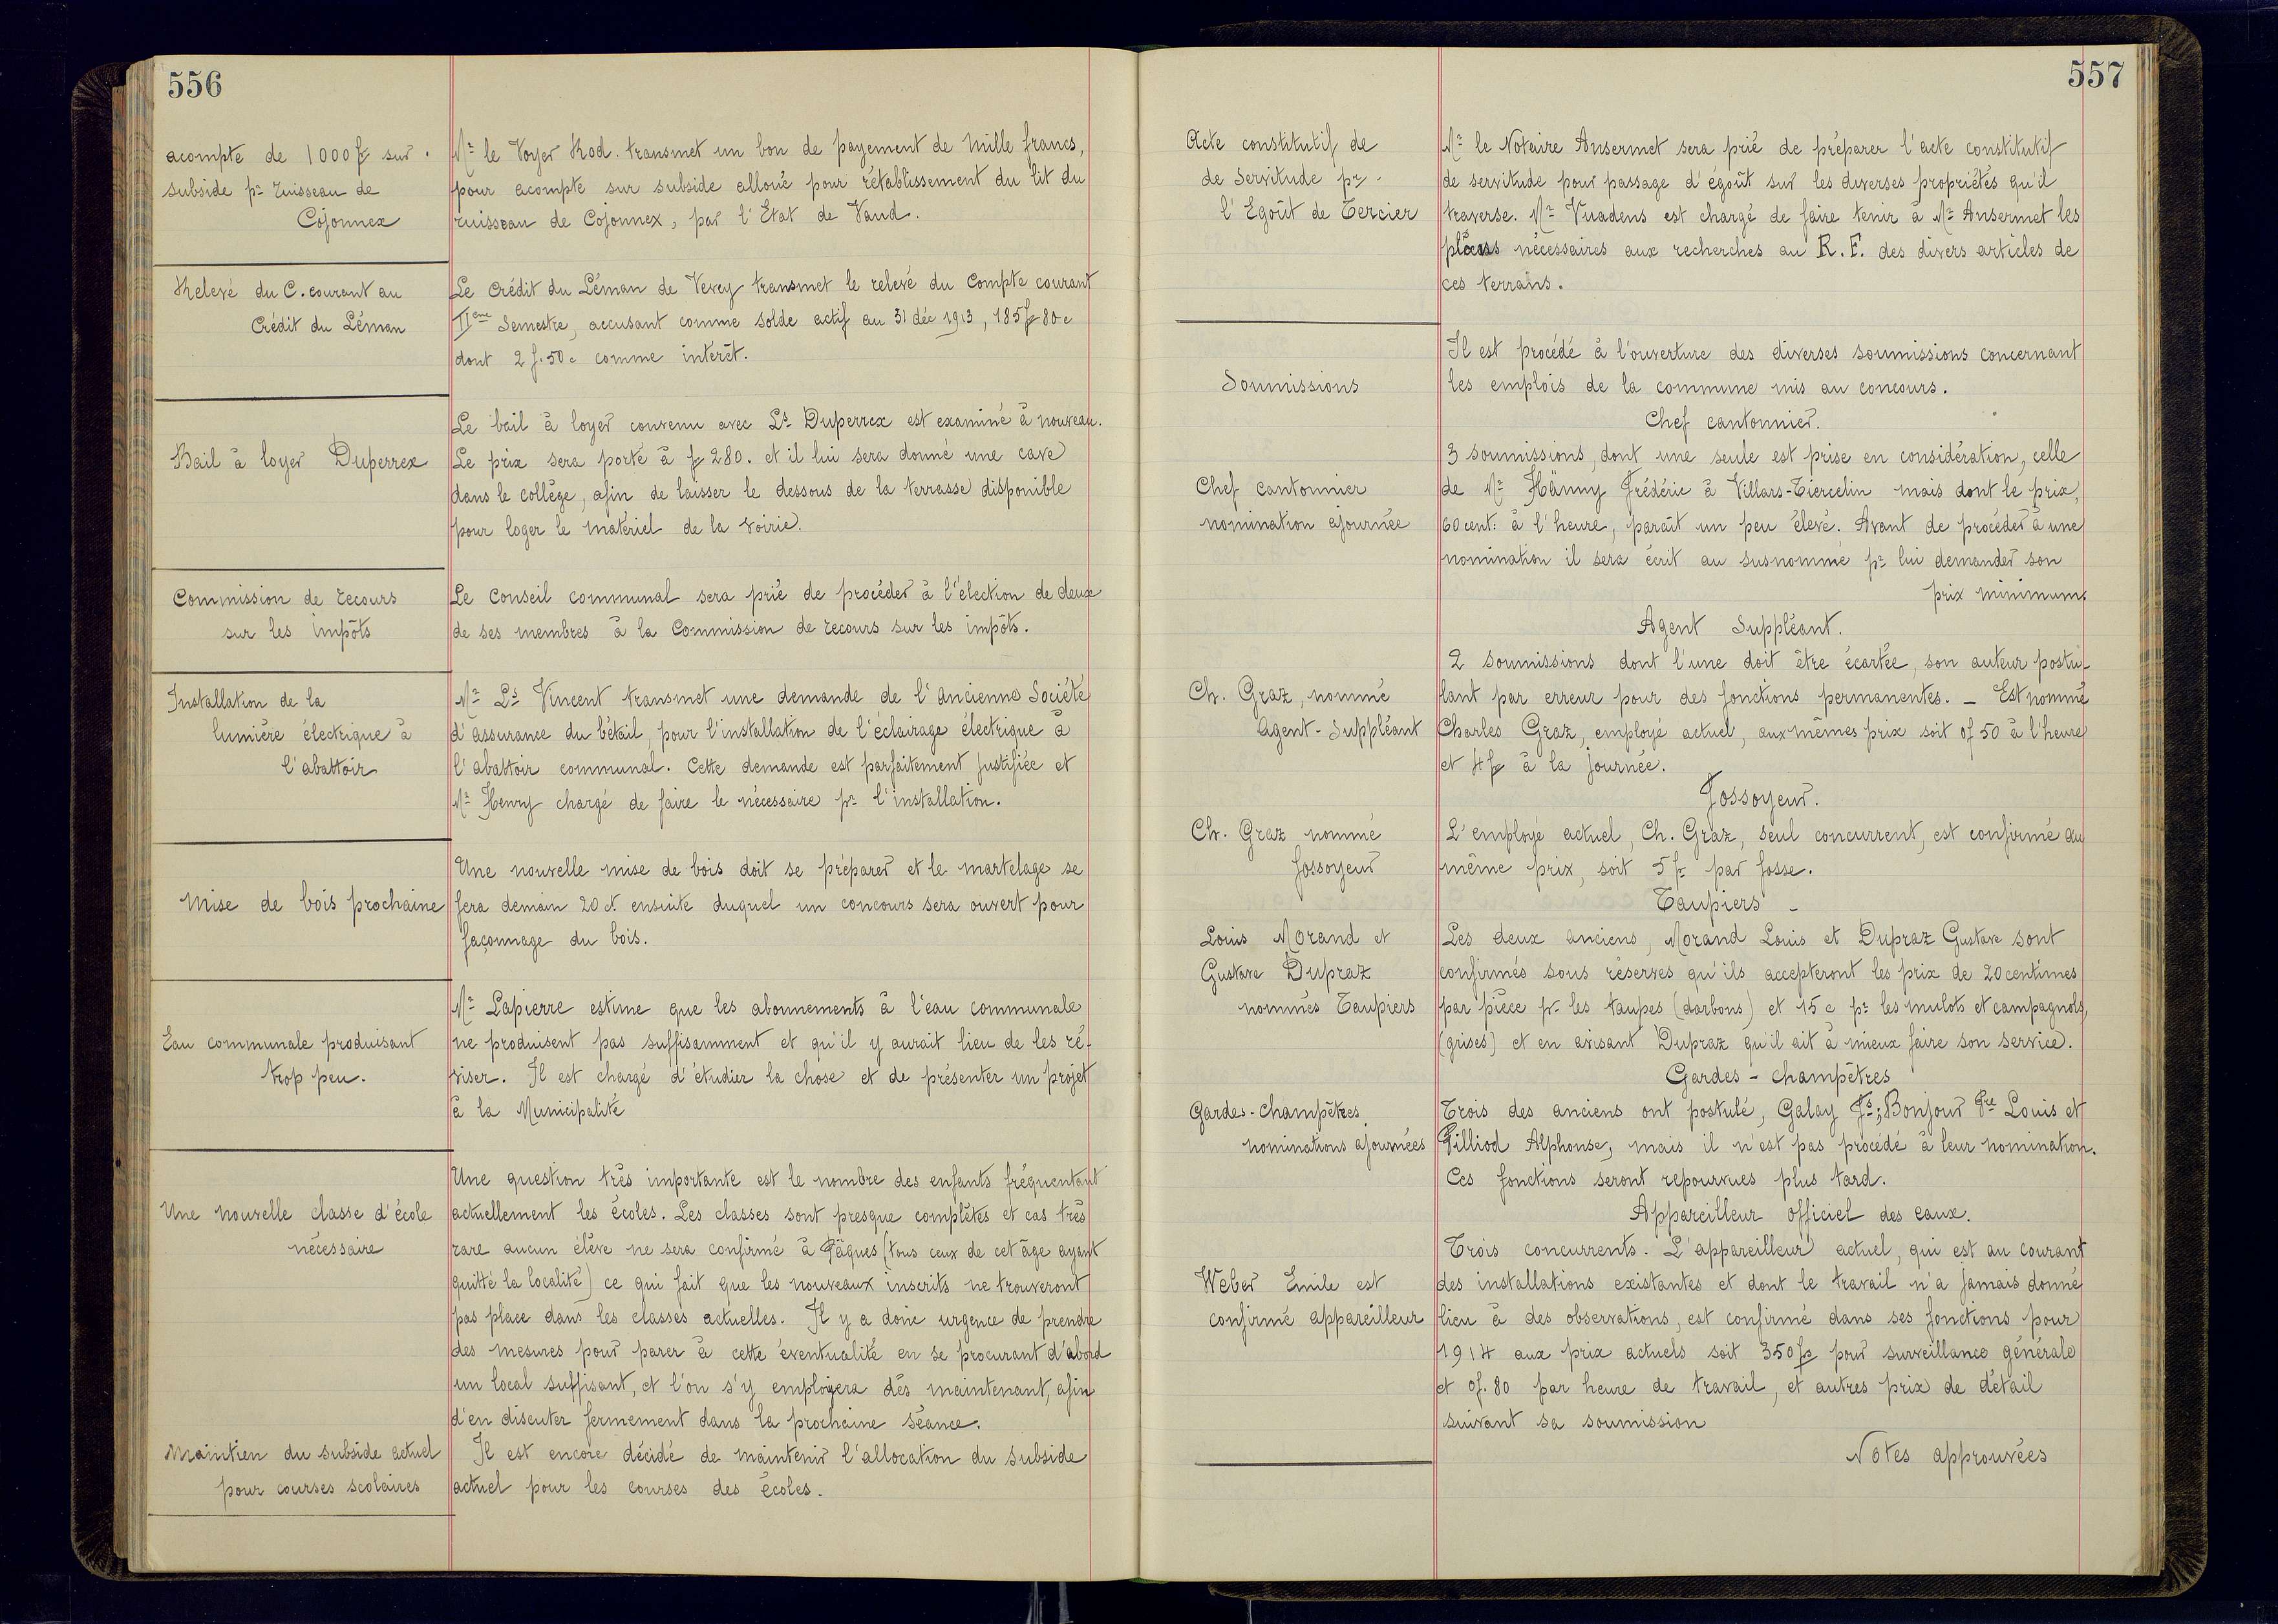 556
acompte de 1000 fr sur
subside pr ruisseau de
Cojonnex
Mr le Voyer Rod. transmet un bon de payement de mille francs,
pour acompte sur subside alloué pour rétablissement du lit du
ruisseau de Cojonnex, par l'Etat de Vaud.
Relevé du C. courant au
Crédit du Léman
Le Crédit du Léman de Vevey transmet le relevé du Compte courant
IIeme Semestre, accusant comme solde actif au 31 déc 1913, 185 fr 80 c
dont 2 f. 50 c comme intérêt.
Bail à loyer Duperrex
Le bail à loyer convenu avec Ls Duperrex est examiné à nouveau.
Le prix sera porté à fr 280. et il lui sera donné une cave
dans le collège, afin de laisser le dessous de la terrasse disponible
pour loger le matériel de la voirie.
Commission de recours
sur les impôts
Le Conseil communal sera prié de procéder à l'élection de deux
de ses membres à la Commission de recours sur les impôts.
Installation de la
lumière électrique à
l'abattoir
Mr Ls Vincent transmet une demande de l'ancienne Société
d'assurance du bétail, pour l'installation de l'éclairage électrique à
l'abattoir communal. Cette demande est parfaitement justifiée et
Mr Henry chargé de faire le nécessaire pr l'installation.
Mise de bois prochaine
Une nouvelle mise de bois doit se préparer et le martelage se
fera demain 20 ct. ensuite duquel un concours sera ouvert pour
façonnage du bois.
Eau communale produisant
trop peu.
Mr Lapierre estime que les abonnements à l'eau communale
ne produisent pas suffisamment et qu'il y aurait lieu de les ré-
viser. Il est chargé d'étudier la chose et de présenter un projet
à la Municipalité
Une nouvelle classe d'école
nécessaire
Une question très importante est le nombre des enfants fréquentant
actuellement les écoles. Les classes sont presque complètes et cas très
rare aucun élève ne sera confirmé à Pâques (tous ceux de cet âge ayant
quitté la localité) ce qui fait que les nouveaux inscrits ne trouveront
pas place dans les classes actuelles. Il y a donc urgence de prendre
des mesures pour parer à cette éventualité en se procurant d'abord
un local suffisant, et l'on s'y emploiera dès maintenant, afin
d'en discuter fermement dans la prochaine séance.
Maintien du subside actuel
pour courses scolaires
Il est encore décidé de maintenir l'allocation du subside
actuel pour les courses des écoles.
557
Acte constitutif de
de servitude pr
l'Egoût de Tercier
Mr le Notaire Ansermet sera prié de préparer l'acte constitutif
de servitude pour passage d'égoût sur les diverses propriétés qu'il
traverse. Mr Vuadens est chargé de faire tenir à Mr Ansermet les
plans nécessaires aux recherches au R. F. des divers articles de
ces terrains.
Soumissions
Il est procédé à l'ouverture des diverses soumissions concernant
les emplois de la commune mis au concours.
Chef cantonnier.
Chef cantonnier
nomination ajournée
3 soumissions, dont une seule est prise en considération, celle
de Mr Hänny Frédéric à Villars-Tiercelin mais dont le prix,
60 cent: à l'heure, paraît un peu élevé. Avant de procéder à une
nomination il sera écrit au susnommé pr lui demander son
prix minimum.
Agent Suppléant.
Ch. Graz, nommé
Agent-Suppléant
2 soumissions dont l'une doit être écartée, son auteur postu-
lant par erreur pour des fonctions permanentes. — Est nommé
Charles Graz, employé actuel, aux mêmes prix soit 0f 50 à l'heure
et 4 fr à la journée.
Fossoyeur.
Ch. Graz nommé
fossoyeur
L'employé actuel, Ch. Graz, seul concurrent, est confirmé au
même prix, soit 5 fr par fosse.
Taupiers —
Louis Morand et
Gustave Dupraz
nommés Taupiers
Les deux anciens, Morand Louis et Dupraz Gustave sont
confirmés sous réserves qu'ils accepteront les prix de 20 centimes
par pièce pr les taupes (darbons) et 15 c pr les mulots et campagnols,
(grises) et en avisant Dupraz qu'il ait à mieux faire son service.
Gardes-champêtres
Gardes-champêtres
nominations ajournées
Trois des anciens ont postulé, Galay Fs; Bonjour Louis et
Pilliod Alphonse, mais il n'est pas procédé à leur nomination.
Ces fonctions seront repourvues plus tard.
Appareilleur officiel des eaux.
Weber Emile est
confirmé appareilleur
Trois concurrents. L'appareilleur actuel, qui est au courant
des installations existantes et dont le travail n'a jamais donné
lieu à des observations, est confirmé dans ses fonctions pour
1914 aux prix actuels soit 350 fr pour surveillance générale
et 0f. 80 par heure de travail, et autres prix de détail
suivant sa soumission
Notes approuvées